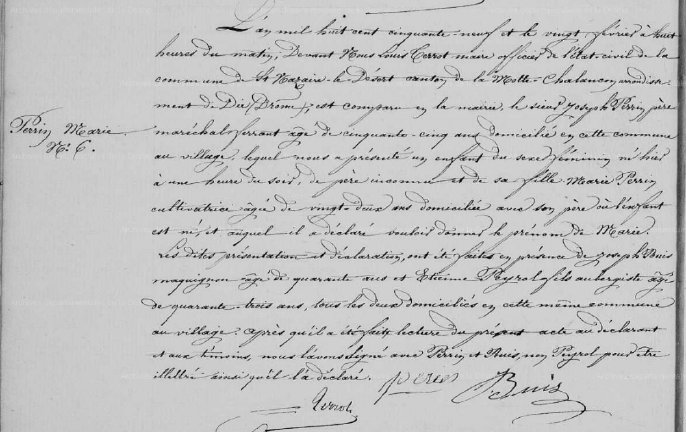 L'an mil huit cent cinquante-neuf et le vingt février à huit
heures du matin, Devant Nous Louis Terrot maire officier de l'état-civil de la
commune de St Nazaire-le Désert canton de la Motte-Chalancon arrondisse-
ment de Die (Drôme), est comparu en la mairie le sieur Joseph Perrin père
Perrin Marie
N° 6.
maréchal ferrant âgé de cinquante-cinq ans domicilié en cette commune
au village, lequel nous a présenté un enfant du sexe féminin né hier
à une heure du soir, de père inconnu et de sa fille Marie Perrin
cultivatrice âgée de vingt-deux ans domiciliée avec son père où l'enfant
est né, et auquel il a déclaré vouloir donner le prénom de Marie.
Les dites présentation et déclaration, ont été faites en présence de Joseph Buis
maquignon âgé de quarante ans et Etienne Peyrol fils aubergiste âgé
de quarante-trois ans, tous les deux domiciliés en cette même commune
au village. Après qu'il a été fait lecture du présent acte au déclarant
et aux témoins, nous l'avons signé avec Perrin et Buis, non Peyrol pour être
illettré ainsi qu'il l'a déclaré.
Buis